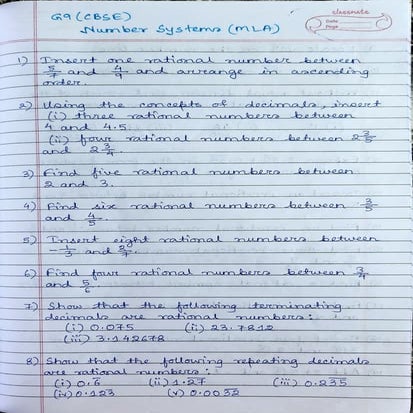 G9 (CBSE)
Number Systems (MLA)
classmate
Date
Page
1) Insert one rational number between
5/7 and 4/9 and arrange in ascending
order.
2) Using the concepts of decimals, insert
(i) three rational numbers between
4 and 4.5.
(ii) four rational numbers between 2 3/5
and 2 3/4.
3) Find five rational numbers between
2 and 3.
4) Find six rational numbers between 3/5
and 4/5.
5) Insert eight rational numbers between
-1/3 and 2/7.
6) Find four rational numbers between 3/4
and 5/6.
7) Show that the following terminating
decimals are rational numbers:
(i) 0.075 (ii) 23.7812
(iii) 3.142678
8) Show that the following repeating decimals
are rational numbers:
(i) 0.6̅ (ii) 1.2̅7̅ (iii) 0.235
(iv) 0.123 (v) 0.0032